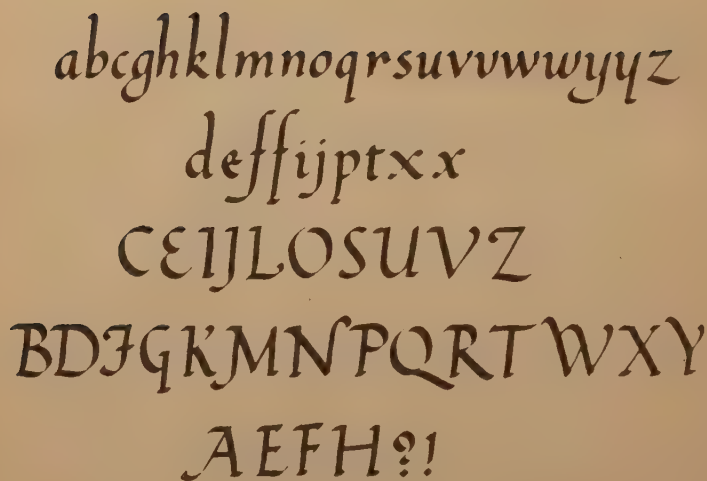 abcghklmnoqrsuvvwwyyz
deffijptxx
CEIJLOSUVZ
BDFGKMNPQRTWXY
AEFH?!